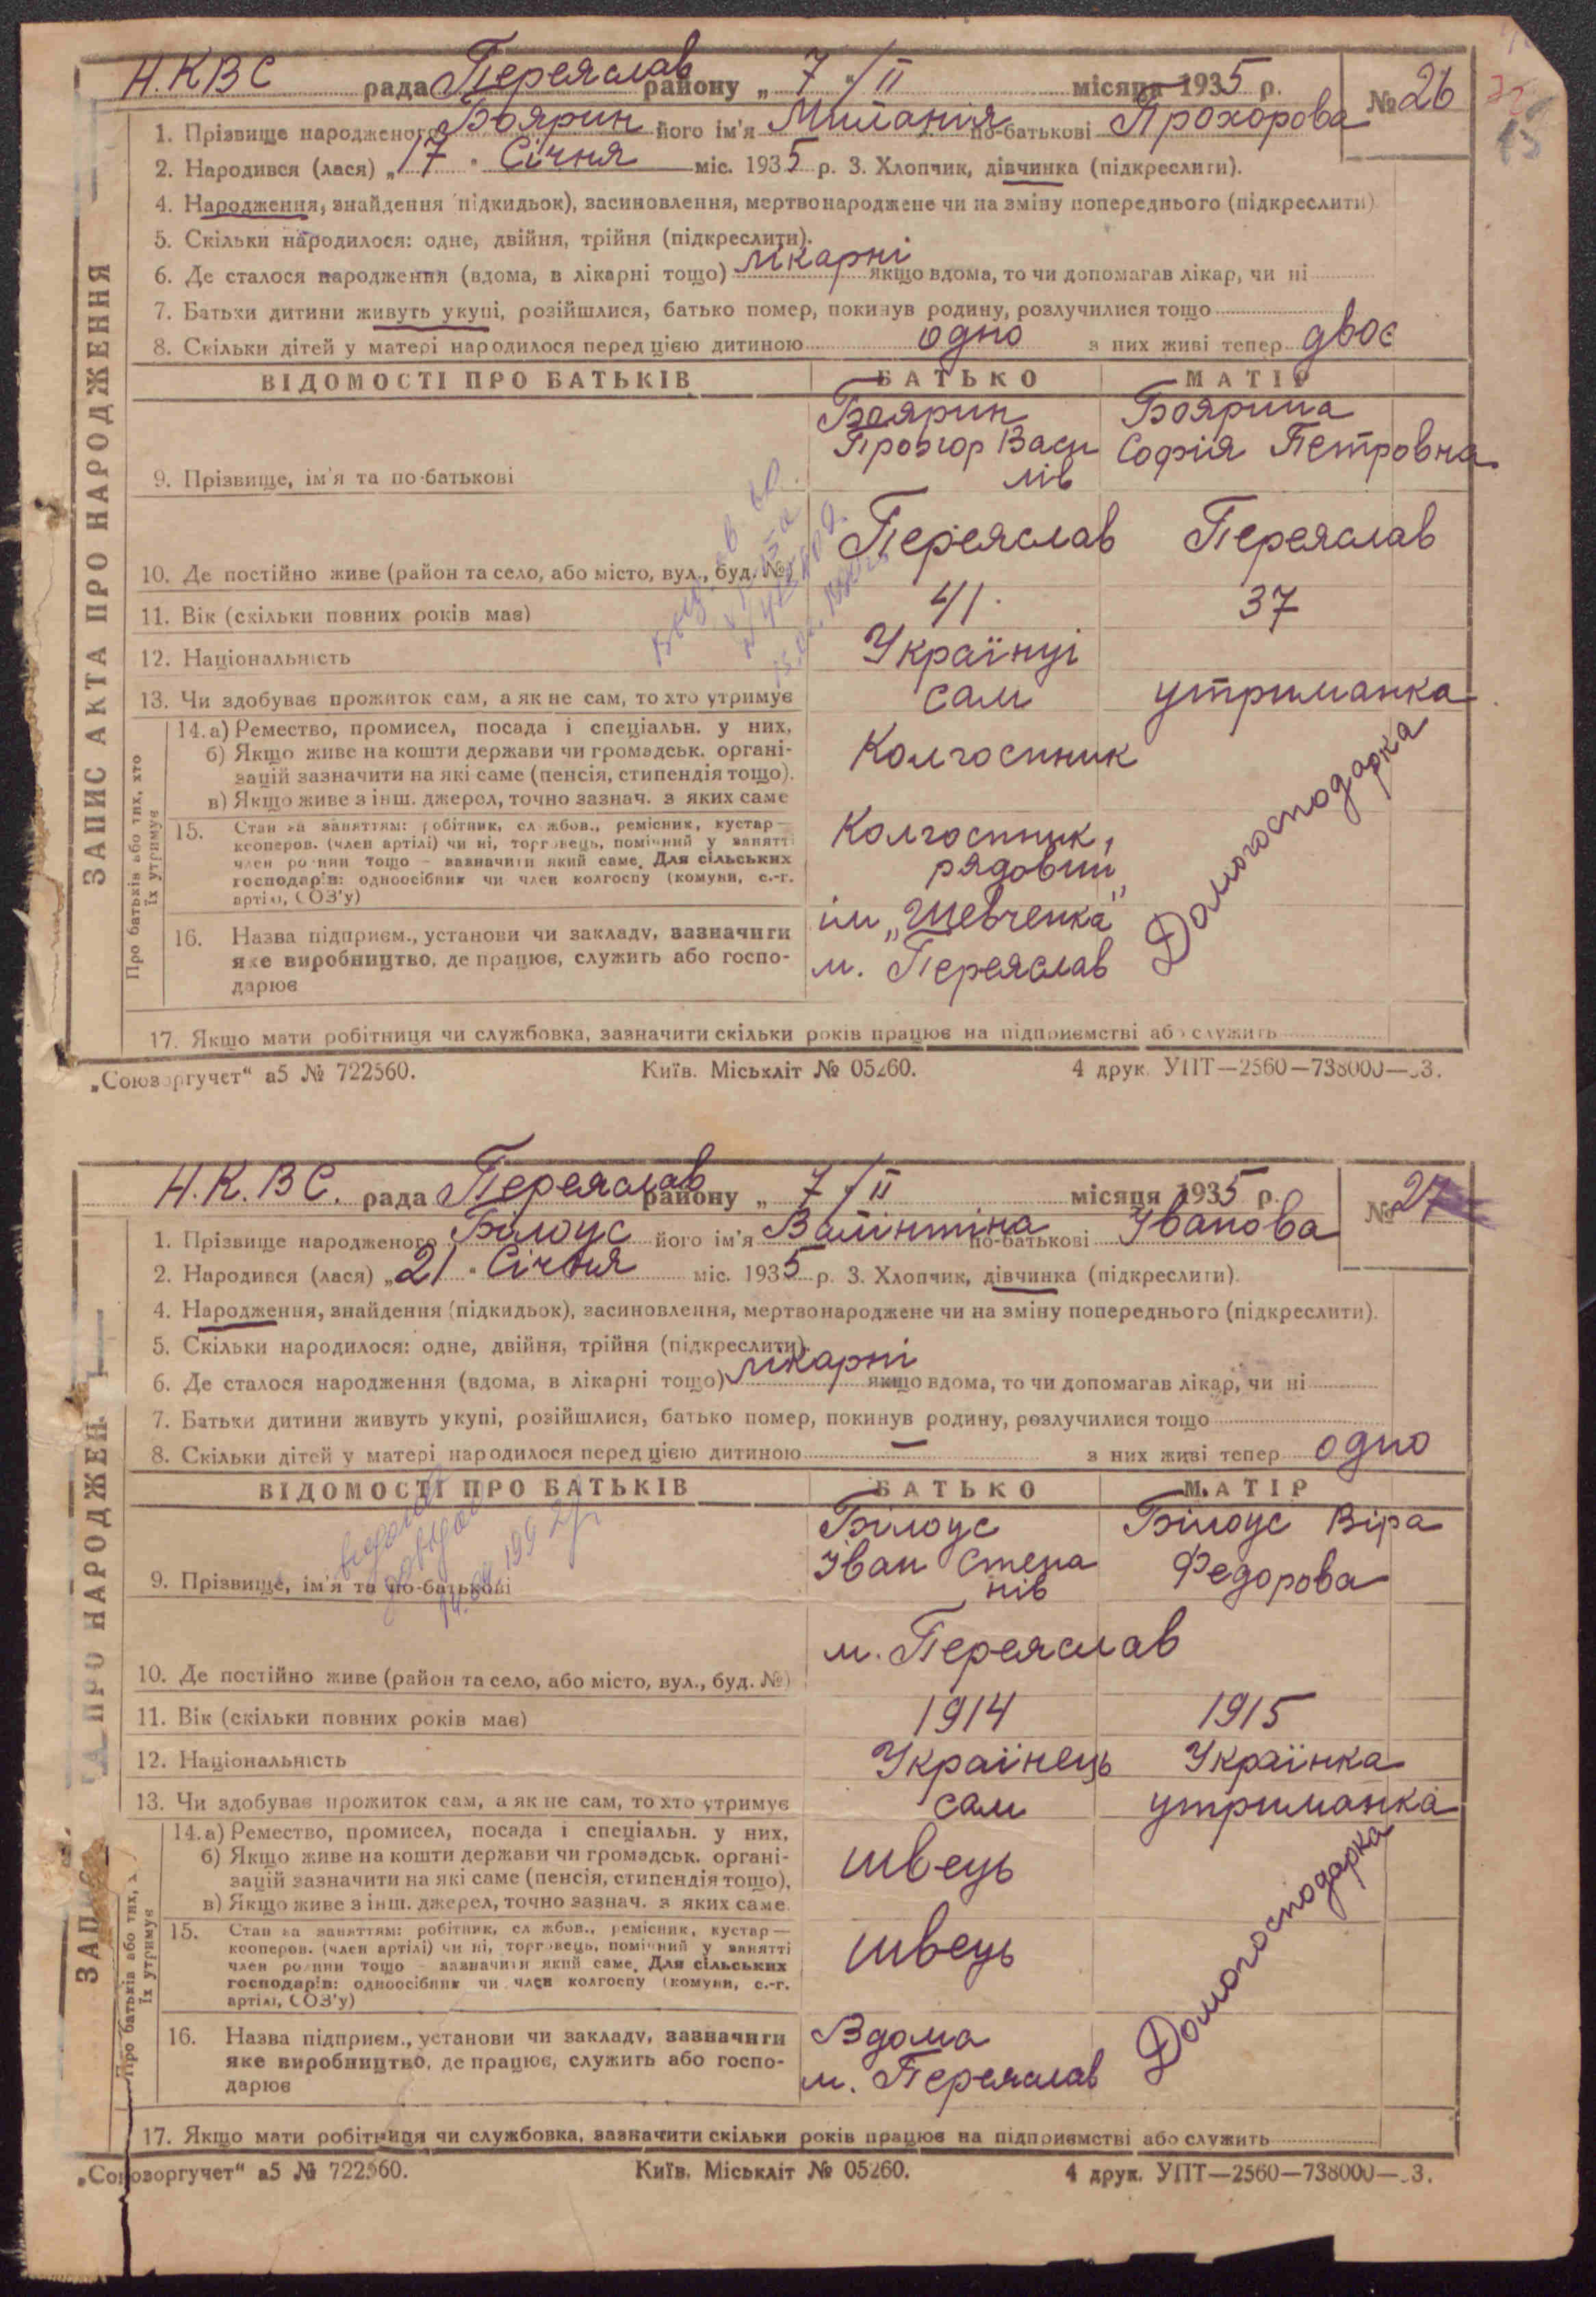 ЗАПИС АКТА ПРО НАРОДЖЕННЯ
Н.КВС рада Переяслав району „ 7 “/ІІ місяця 1935 р. № 26
1. Прізвище народженого Боярин його ім'я Миланія по-батькові Прохорова
2. Народився (лася) „ 17 “ Січня міс. 1935 р. 3. Хлопчик, дівчинка (підкреслити).
4. Народження, знайдення підкидьок), засиновлення, мертвонароджене чи на зміну попереднього (підкреслити)
5. Скільки народилося: одне, двійня, трійня (підкреслити).
6. Де сталося народження (вдома, в лікарні тощо) лікарні якщо вдома, то чи допомагав лікар, чи ні
7. Батьки дитини живуть укупі, розійшлися, батько помер, покинув родину, розлучилися тощо
8. Скільки дітей у матері народилося перед цією дитиною одно з них живі тепер двоє
ВІДОМОСТІ ПРО БАТЬКІВ БАТЬКО МАТІР
9. Прізвище, ім'я та по-батькові Боярин Прохор Васи лів Боярина Софія Петровна
10. Де постійно живе (район та село, або місто, вул., буд. № Переяслав Переяслав
11. Вік (скільки повних років має) 41 37
12. Національність Українці
13. Чи здобуває прожиток сам, а як не сам, то хто утримує сам утриманка
Про батьків або тих, хто їх утримує
14. а) Ремество, промисел, посада і спеціальн. у них,
б) Якщо живе на кошти держави чи громадськ. органі-
зацій зазначити на які саме (пенсія, стипендія тощо).
в) Якщо живе з інш. джерел, точно зазнач. з яких саме
Колгоспник
Домогосподарка
15. Стан за заняттям: робітник, службов., ремісник, кустар—
кооперов. (член артілі) чи ні, торговець, помічний у занятті
член родини тощо — зазначити який саме. Для сільських
господарів: одноосібник чи член колгоспу (комуни, с.-г.
артілі, СОЗ'у)
Колгоспник,
рядовий
16. Назва підприєм., установи чи закладу, зазначити
яке виробництво, де працює, служить або госпо-
дарює
ім „Шевченка“
м. Переяслав
17. Якщо мати робітниця чи службовка, зазначити скільки років працює на підприємстві або служить
„Союзоргучет“ а5 № 722560. Київ. Міськліт № 05260. 4 друк. УПТ—2560—738000—33.
Н.К.ВС. рада Переяслав району „ 7 “/ІІ місяця 1935 р. № 27
1. Прізвище народженого Білоус його ім'я Валінтіна по-батькові Іванова
2. Народився (лася) „ 21 “ Січня міс. 1935 р. 3. Хлопчик, дівчинка (підкреслити).
4. Народження, знайдення (підкидьок), засиновлення, мертвонароджене чи на зміну попереднього (підкреслити).
5. Скільки народилося: одне, двійня, трійня (підкреслити).
6. Де сталося народження (вдома, в лікарні тощо) лікарні якщо вдома, то чи допомагав лікар, чи ні
7. Батьки дитини живуть укупі, розійшлися, батько помер, покинув родину, розлучилися тощо
8. Скільки дітей у матері народилося перед цією дитиною — з них живі тепер одно
ВІДОМОСТІ ПРО БАТЬКІВ БАТЬКО МАТІР
9. Прізвище, ім'я та по-батькові Білоус Іван Степа нів Білоус Віра Федорова
10. Де постійно живе (район та село, або місто, вул., буд. №) м. Переяслав
11. Вік (скільки повних років має) 1914 1915
12. Національність Українець Українка
13. Чи здобуває прожиток сам, а як не сам, то хто утримує сам утриманка
Про батьків або тих,
їх утримує
14. а) Ремество, промисел, посада і спеціальн. у них,
б) Якщо живе на кошти держави чи громадськ. органі-
зацій зазначити на які саме (пенсія, стипендія тощо),
в) Якщо живе з інш. джерел, точно зазнач. з яких саме
швець
Домогосподарка
15. Стан за заняттям: робітник, службов., ремісник, кустар—
кооперов. (член артілі) чи ні, торговець, помічний у занятті
член родини тощо — зазначити який саме. Для сільських
господарів: одноосібник чи член колгоспу (комуни, с.-г.
артілі, СОЗ'у)
швець
16. Назва підприєм., установи чи закладу, зазначити
яке виробництво, де працює, служить або госпо-
дарює
Вдома
м. Переяслав
17. Якщо мати робітниця чи службовка, зазначити скільки років працює на підприємстві або служить
„Союзоргучет“ а5 № 722560. Київ. Міськліт № 05260. 4 друк. УПТ—2560—738000—33.